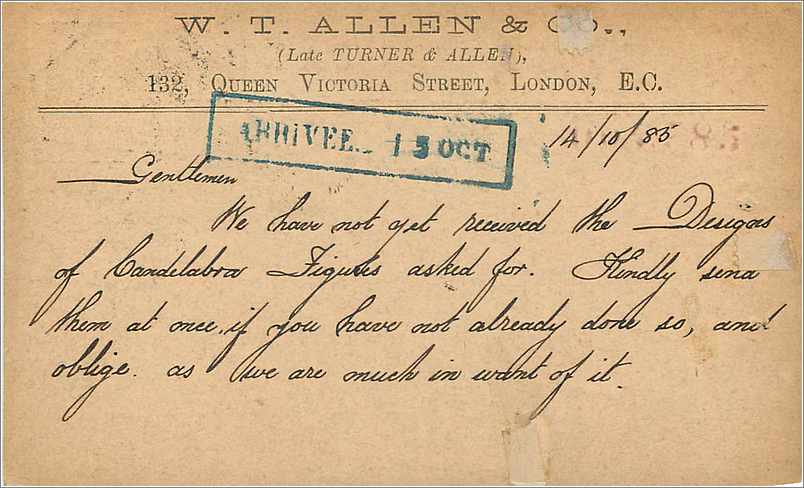 W. T. ALLEN & CO.,
(Late TURNER & ALLEN),
132, QUEEN VICTORIA STREET, LONDON, E.C.
ARRIVEE 15 OCT
14/10/85
Gentlemen
We have not yet received the Designs
of Candelabra Figures asked for. Kindly send
them at once, if you have not already done so, and
oblige. as we are much in want of it.